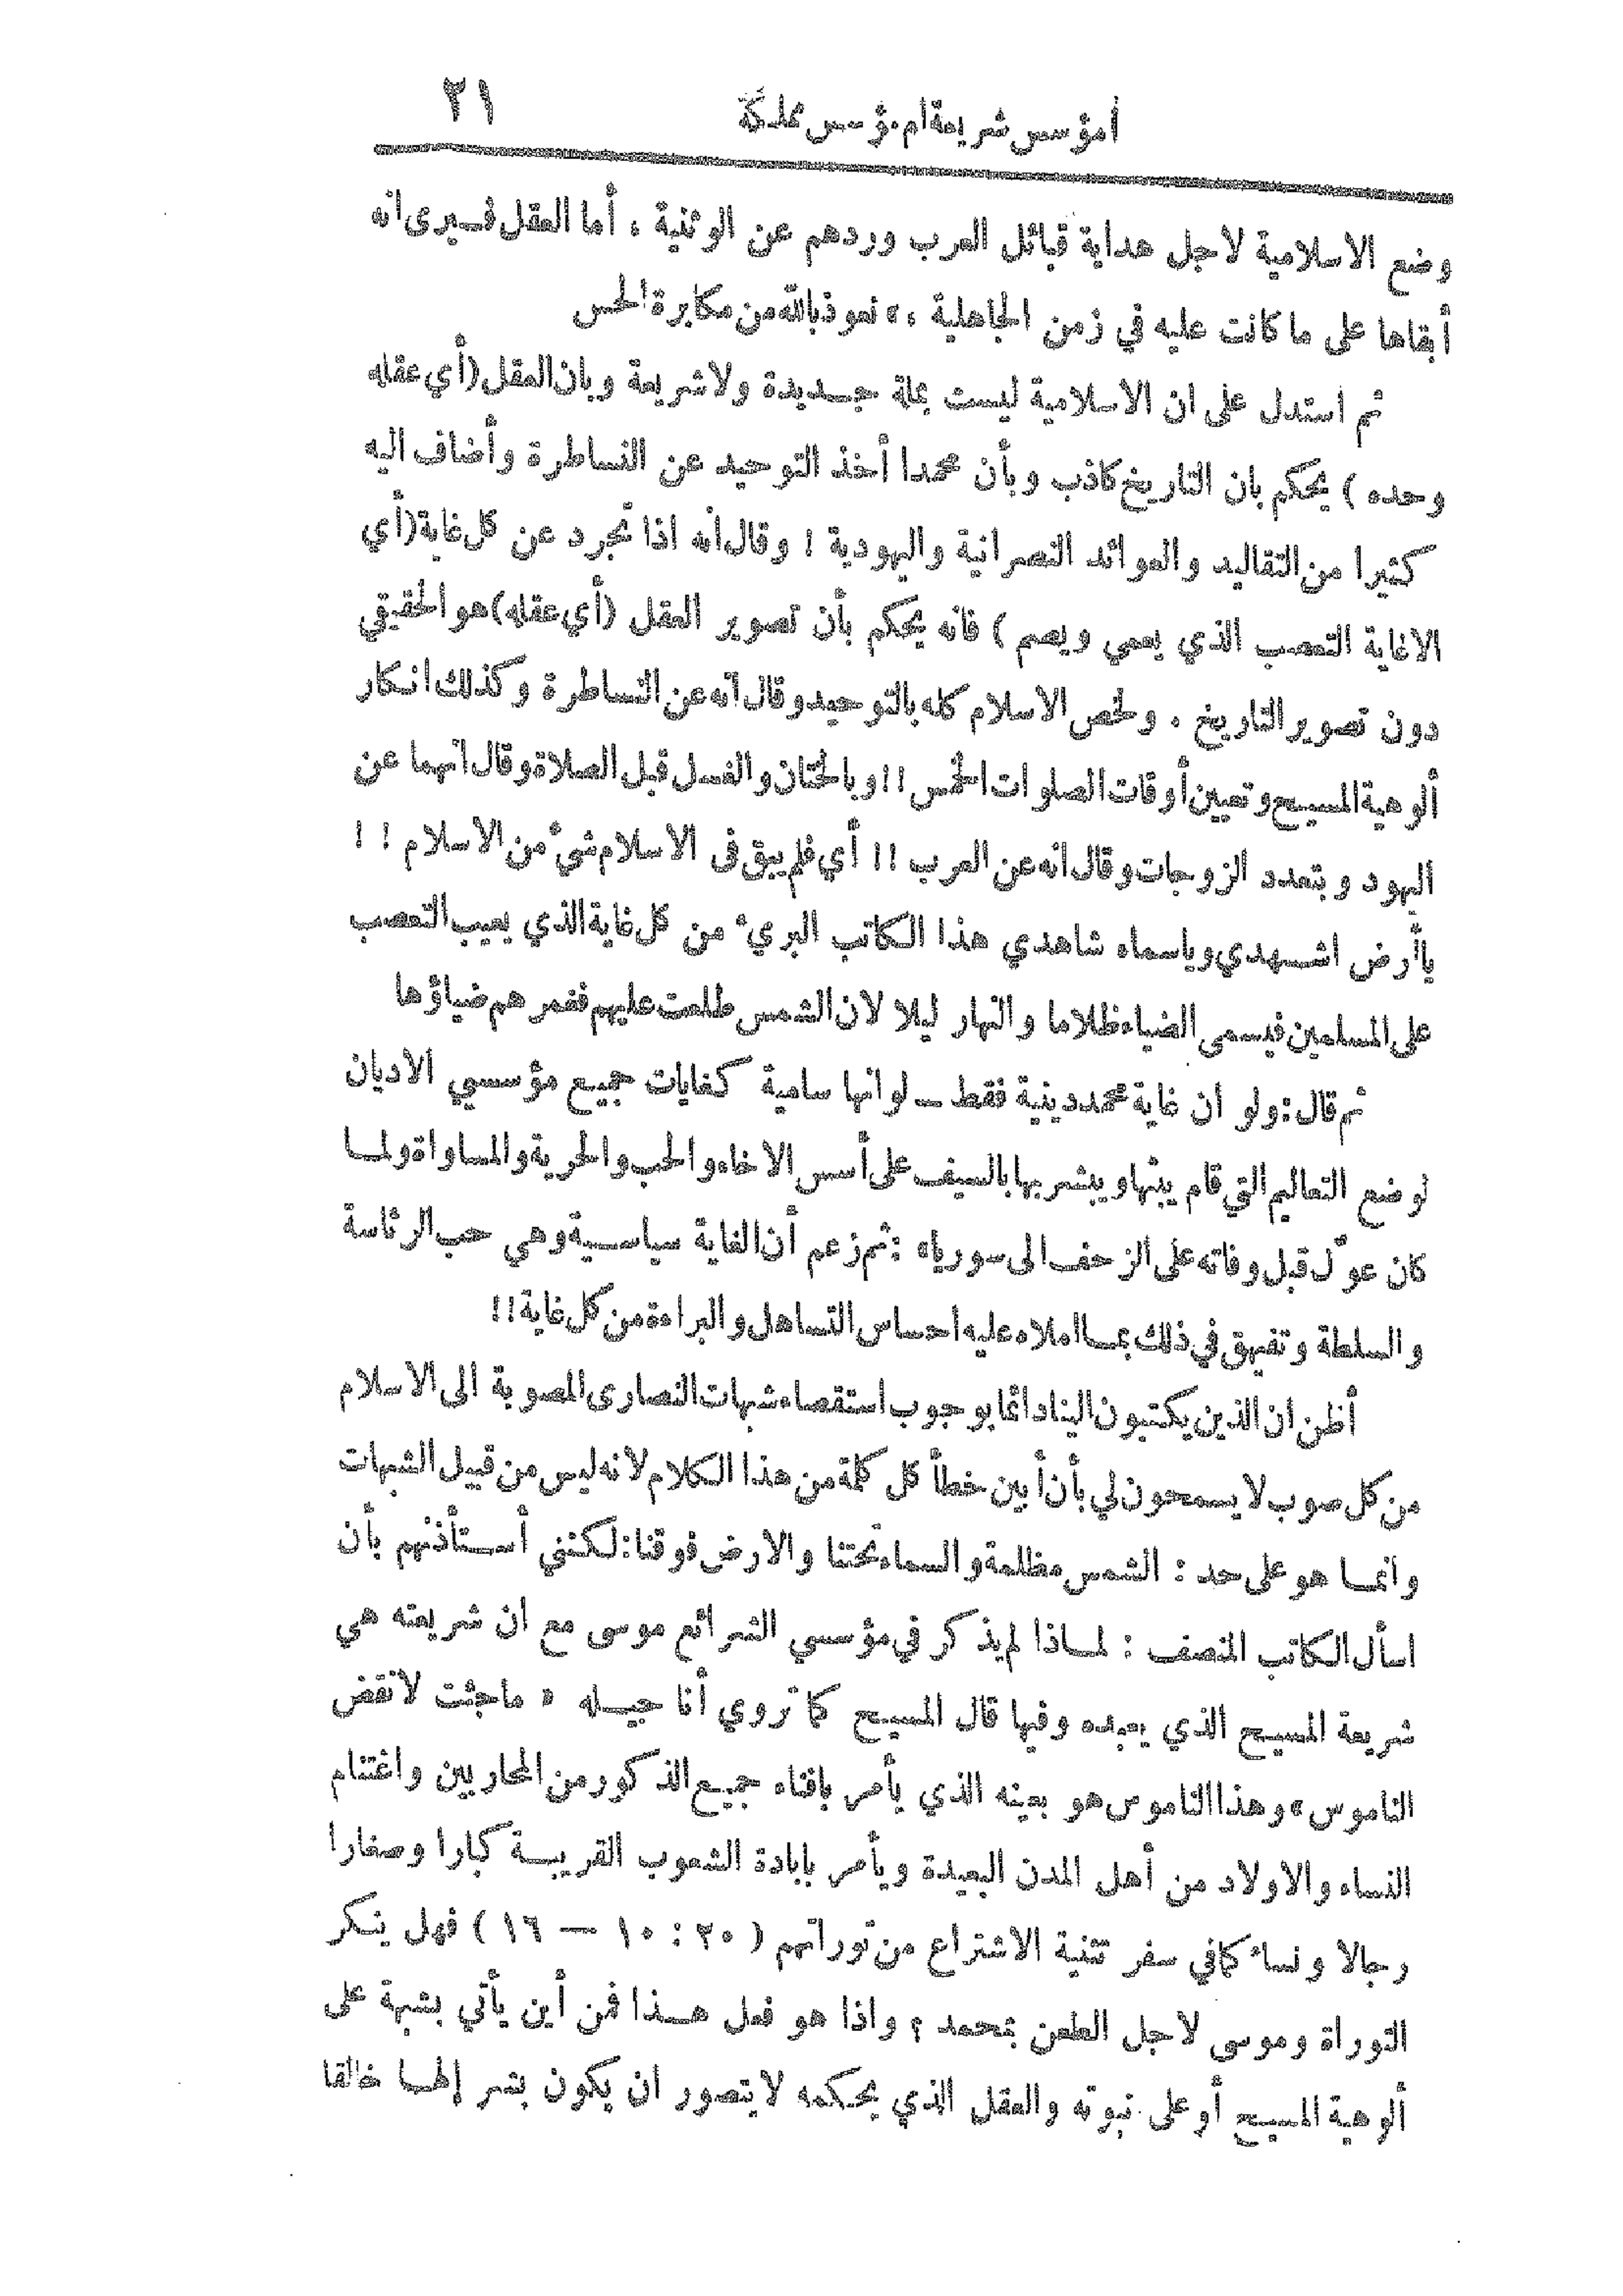 أمؤسس شريعة أم مؤسس مملكة ٢١
وضع الاسلامية لاجل هداية قبائل العرب وردهم عن الوثنية ، أما العقل فيرى انه
أبقاها على ما كانت عليه في زمن الجاهلية ، » نعوذ بالله من مكابرة الحس
ثم استدل على ان الاسلامية ليست بملة جديدة ولا شريعة وبان العقل (أي عقله
وحده ) يحكم بان التاريخ كاذب وبأن محمدا أخذ التوحيد عن النساطرة وأضاف اليه
كثيرا من التقاليد والعوائد النصرانية واليهودية ! وقال انه اذا تجرد عن كل غاية (أي
الا غاية التعصب الذي يعمي ويصم ) فانه يحكم بأن تصوير العقل (أي عقله) هو الحقيقي
دون تصوير التاريخ . ولخص الاسلام كله بالتوحيد وقال انه عن النساطرة وكذلك انكار
ألوهية المسيح وتعيين أوقات الصلوات الخمس !! وبالختان والغسل قبل الصلاة وقال انهما عن
اليهود وبتعدد الزوجات وقال انه عن العرب !! أي فلم يبق فى الاسلام شيء من الاسلام ! !
ياأرض اشهدي وياسماء شاهدي هذا الكاتب البريء من كل غاية الذي يعيب التعصب
على المسلمين فيسمى الضياء ظلاما والنهار ليلا لان الشمس طلعت عليهم فغمرهم ضياؤها
ثم قال : ولو ان غاية محمد دينية فقط ــ لوانها سامية كغايات جميع مؤسسي الاديان
لوضع التعاليم التي قام يبثها ويبشر بها بالسيف على أسس الاخاء والحب والحرية والمساواة ولما
كان عوّل قبل وفاته على الزحف الى سوريا » : ثم زعم أن الغاية سياسية وهي حب الرئاسة
والسلطة وتفيهق في ذلك بما املاه عليه احساس التساهل والبراءة من كل غاية !!
أظن ان الذين يكتبون الينا دائما بوجوب استقصاء شبهات النصارى المصوبة الى الاسلام
من كل صوب لا يسمحون لي بأن أبين خطأ كل كلمة من هذا الكلام لانه ليس من قبيل الشبهات
وانما هو على حد : الشمس مظلمة والسماء تحتنا والارض فوقنا : لكنني أستأذنهم بأن
اسأل الكاتب المنصف : لماذا لم يذكر في مؤسسي الشرائع موسى مع ان شريعته هي
شريعة المسيح الذي يعبده وفيها قال المسيح كما تروي أناجيله « ماجئت لانقض
الناموس » وهذا الناموس هو بعينه الذي يأمر بافناء جميع الذكور من المحاربين واغتنام
النساء والاولاد من أهل المدن البعيدة ويأمر بابادة الشعوب القريبة كبارا وصغارا
رجالا ونساء كمافي سفر تثنية الاشتراع من توراتهم ( ٢٠ : ١٠ — ١٦ ) فهل ينكر
التوراة وموسى لاجل الطعن بمحمد ؟ واذا هو فعل هذا فمن أين يأتي بشبهة على
ألوهية المسيح أو على نبوته والعقل الذي يحكمه لا يتصور ان يكون بشر إلها خالقا